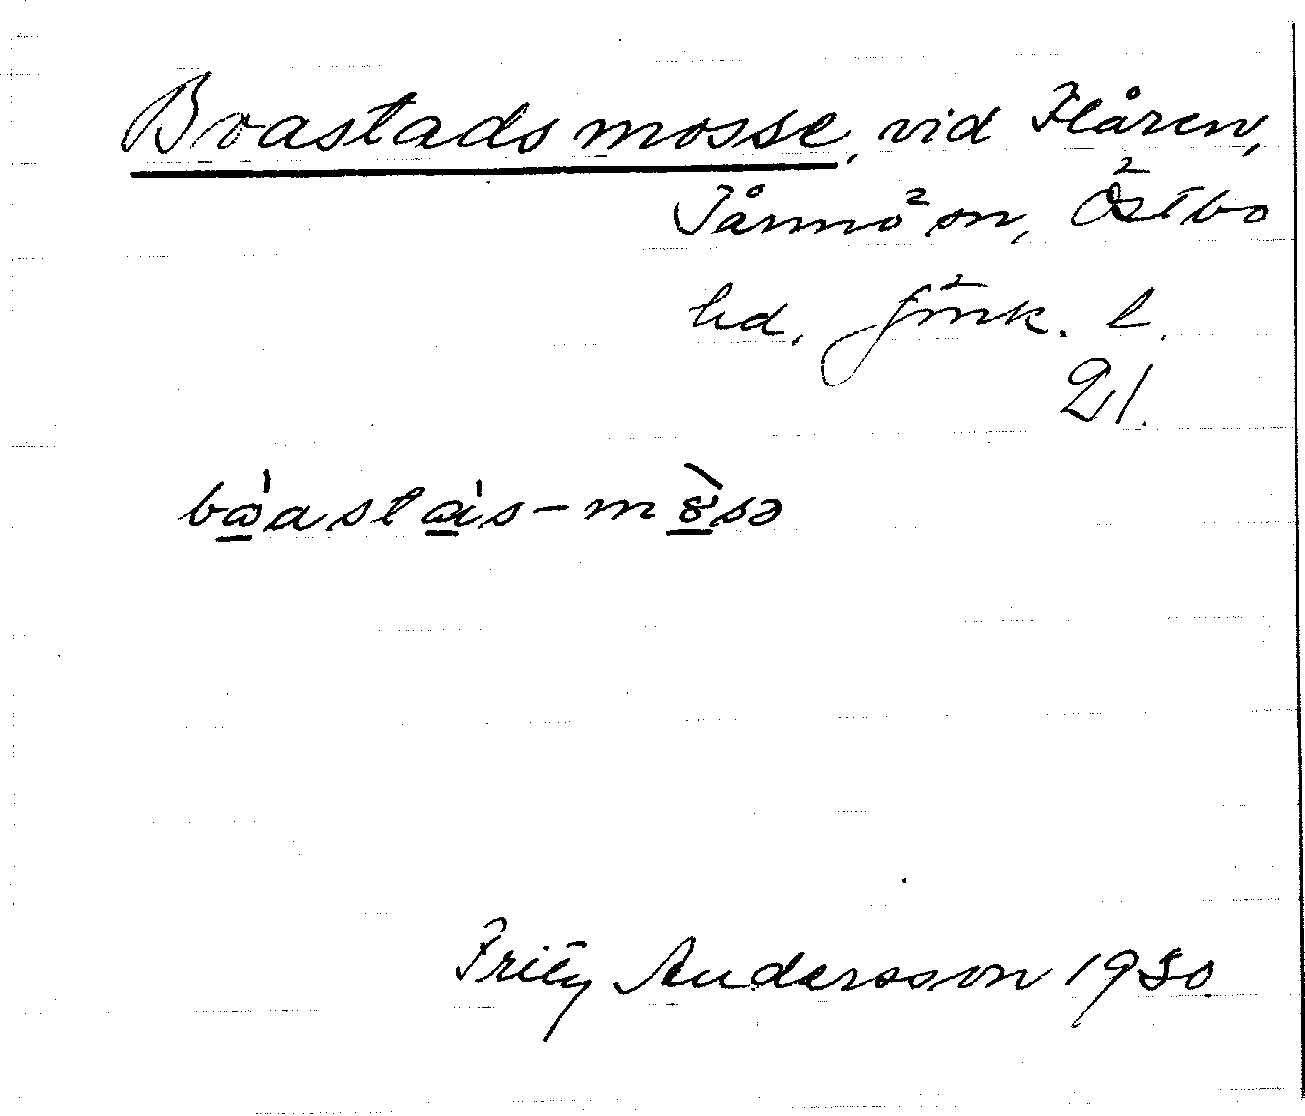 Brastads mosse, vid Flåren,
Tånnö sn, Östbo
hd, Jönk. l.
21.
bɷ̀astɷ̀s-m8̀sə
Fritz Andersson 1930